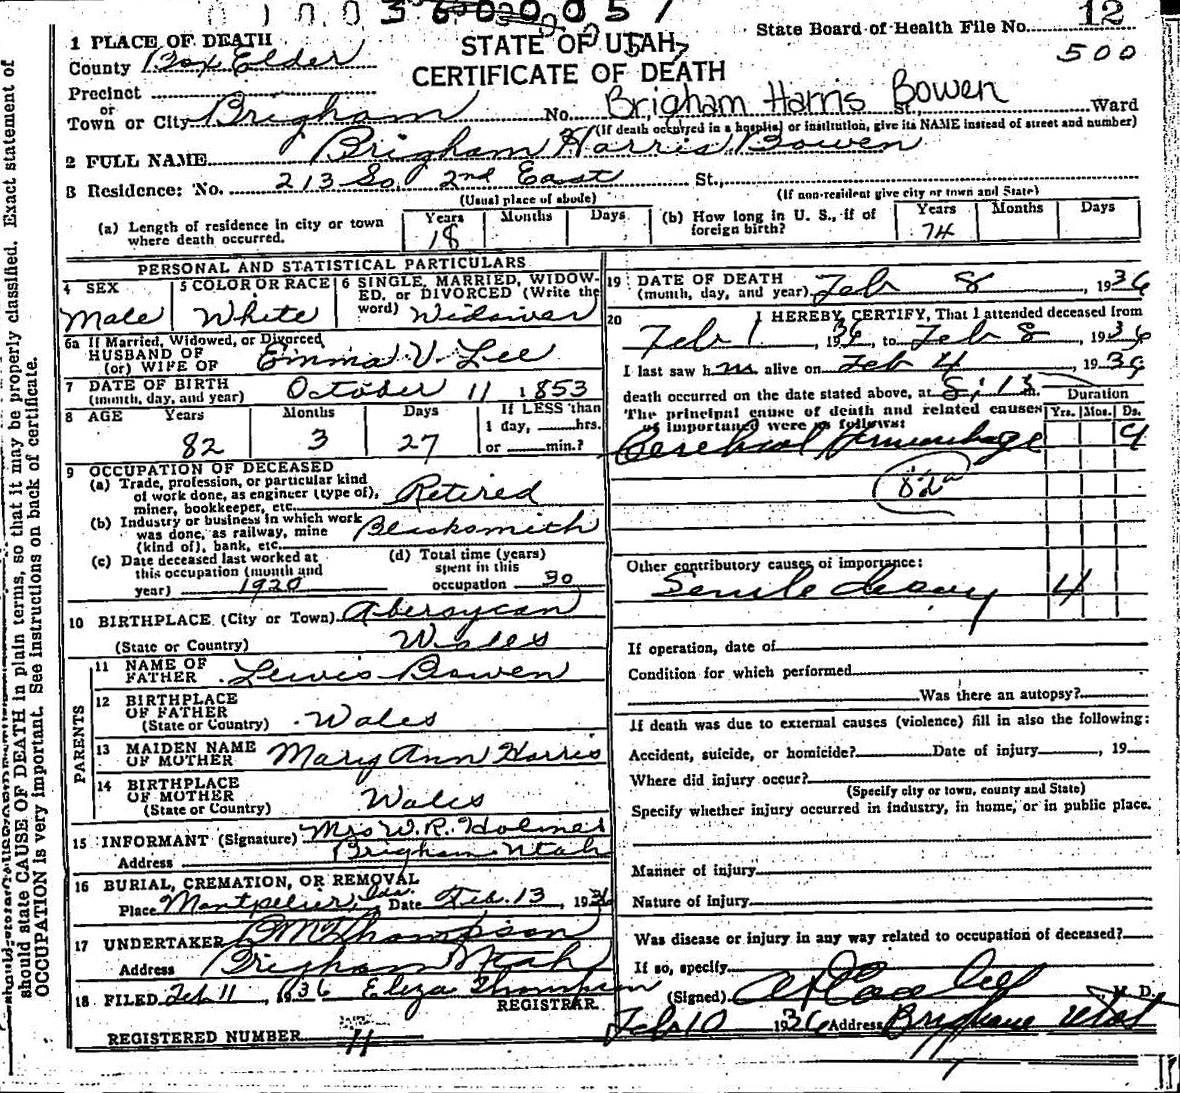 12
State Board of Health File No.
500
STATE OF UTAH
CERTIFICATE OF DEATH
1 PLACE OF DEATH
County Box Elder
Precinct
or
Town or City Brigham No. Brigham Harris Bowen St., Ward
(If death occurred in a hospital or institution, give its NAME instead of street and number)
2 FULL NAME Brigham Harris Bowen
3 Residence: No. 213 So. 2nd East St.,
(Usual place of abode) (If non-resident give city or town and State)
(a) Length of residence in city or town where death occurred. Years 18 Months Days
(b) How long in U. S., if of foreign birth? Years 74 Months Days
PERSONAL AND STATISTICAL PARTICULARS
4 SEX Male
5 COLOR OR RACE White
6 SINGLE, MARRIED, WIDOW-
ED, or DIVORCED (Write the
word) Widower
6a If Married, Widowed, or Divorced
HUSBAND OF
(or) WIFE OF Emma V. Lee
7 DATE OF BIRTH
(month, day, and year) October 11 1853
8 AGE Years 82 Months 3 Days 27 If LESS than
1 day, hrs.
or min.?
9 OCCUPATION OF DECEASED
(a) Trade, profession, or particular kind
of work done, as engineer (type of),
miner, bookkeeper, etc. Retired
(b) Industry or business in which work
was done, as railway, mine
(kind of), bank, etc. Blacksmith
(c) Date deceased last worked at
this occupation (month and
year) 1920
(d) Total time (years)
spent in this
occupation 30
10 BIRTHPLACE (City or Town) Abersycan
(State or Country) Wales
PARENTS
11 NAME OF
FATHER Lewis Bowen
12 BIRTHPLACE
OF FATHER
(State or Country) Wales
13 MAIDEN NAME
OF MOTHER Mary Ann Harris
14 BIRTHPLACE
OF MOTHER
(State or Country) Wales
15 INFORMANT (Signature) Mrs W. R. Holmes
Address Brigham Utah
16 BURIAL, CREMATION, OR REMOVAL
Place Montpelier, Ida. Date Feb. 13, 1936
17 UNDERTAKER Thompson
Address Brigham Utah
18 FILED Feb 11, 1936 Eliza Thompson
REGISTRAR.
REGISTERED NUMBER 11
19 DATE OF DEATH
(month, day, and year) Feb 8, 1936
20 I HEREBY CERTIFY, That I attended deceased from
Feb 1 1936, to Feb 8, 1936
I last saw him alive on Feb 4, 1936
death occurred on the date stated above, at 8:15 m.
The principal cause of death and related causes
of importance were as follows:
Duration
Yrs. Mos. Ds.
Cerebral Hemorrhage 9
82a
Other contributory causes of importance:
Senile decay 4
If operation, date of
Condition for which performed
Was there an autopsy?
If death was due to external causes (violence) fill in also the following:
Accident, suicide, or homicide? Date of injury, 19
Where did injury occur?
(Specify city or town, county and State)
Specify whether injury occurred in industry, in home, or in public place.
Manner of injury
Nature of injury
Was disease or injury in any way related to occupation of deceased?
If so, specify
(Signed) M. D.
Feb 10 1936 Address Brigham Utah
should state CAUSE OF DEATH in plain terms, so that it may be properly classified. Exact statement of
OCCUPATION is very important. See instructions on back of certificate.